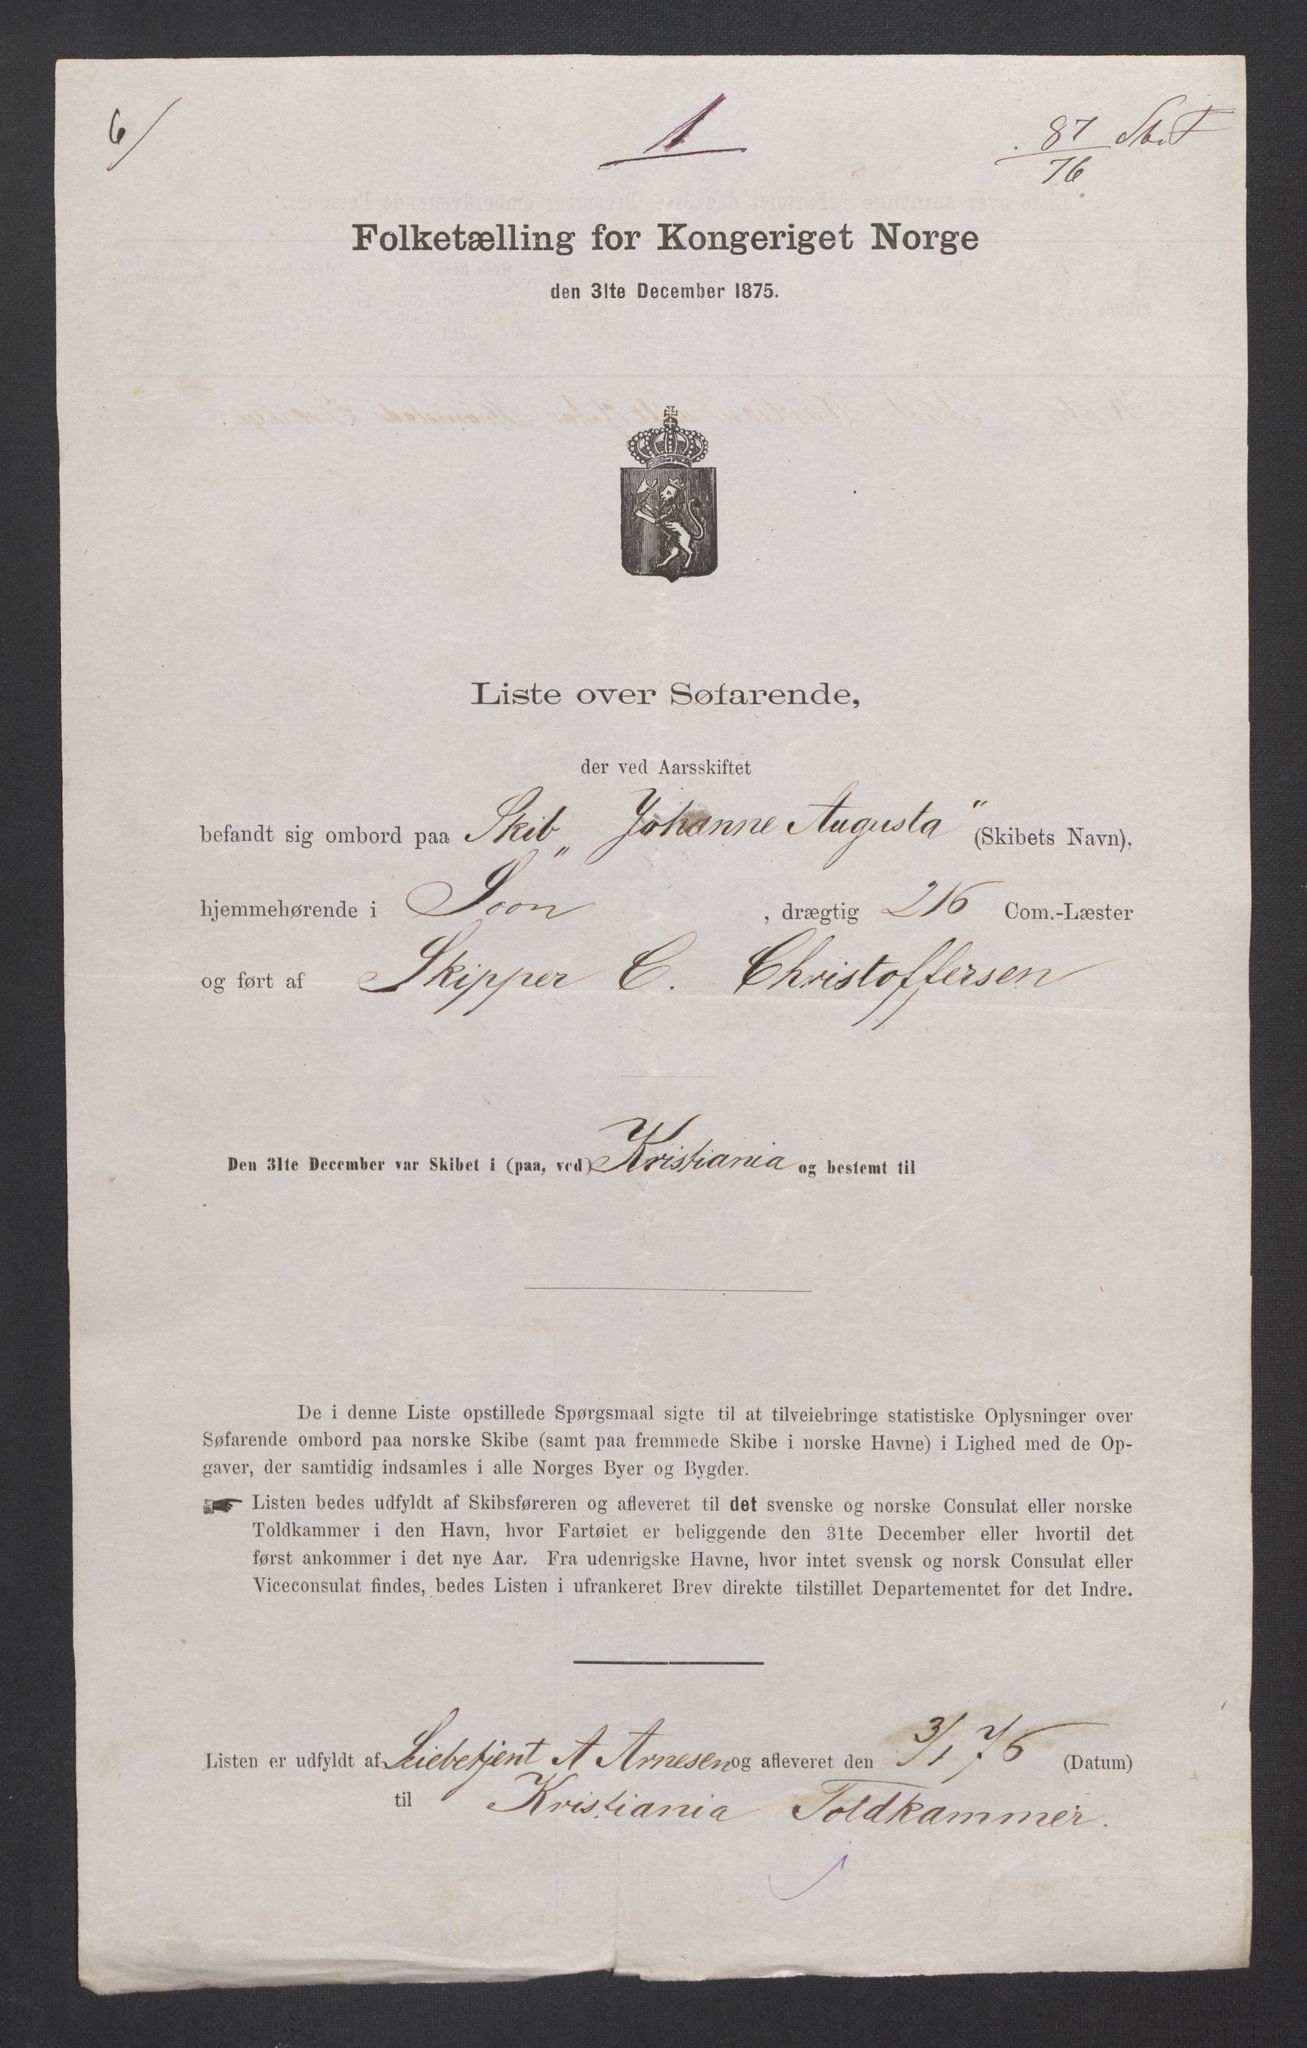 6/
1
87 Sb.T
76
Folketælling for Kongeriget Norge
den 31te December 1875.
Liste over Søfarende,
der ved Aarsskiftet
befandt sig ombord paa Skib „Johanne Augusta" (Skibets Navn),
hjemmehørende i Soon, drægtig 216 Com.-Læster
og ført af Skipper C. Christoffersen
Den 31te December var Skibet i (paa, ved) Kristiania og bestemt til
De i denne Liste opstillede Spørgsmaal sigte til at tilveiebringe statistiske Oplysninger over
Søfarende ombord paa norske Skibe (samt paa fremmede Skibe i norske Havne) i Lighed med de Op-
gaver, der samtidig indsamles i alle Norges Byer og Bygder.
Listen bedes udfyldt af Skibsføreren og afleveret til det svenske og norske Consulat eller norske
Toldkammer i den Havn, hvor Fartøiet er beliggende den 31te December eller hvortil det
først ankommer i det nye Aar. Fra udenrigske Havne, hvor intet svensk og norsk Consulat eller
Viceconsulat findes, bedes Listen i ufrankeret Brev direkte tilstillet Departementet for det Indre.
Listen er udfyldt af A Arnesen og afleveret den 3/1 76 (Datum)
til Kristiania Toldkammer.